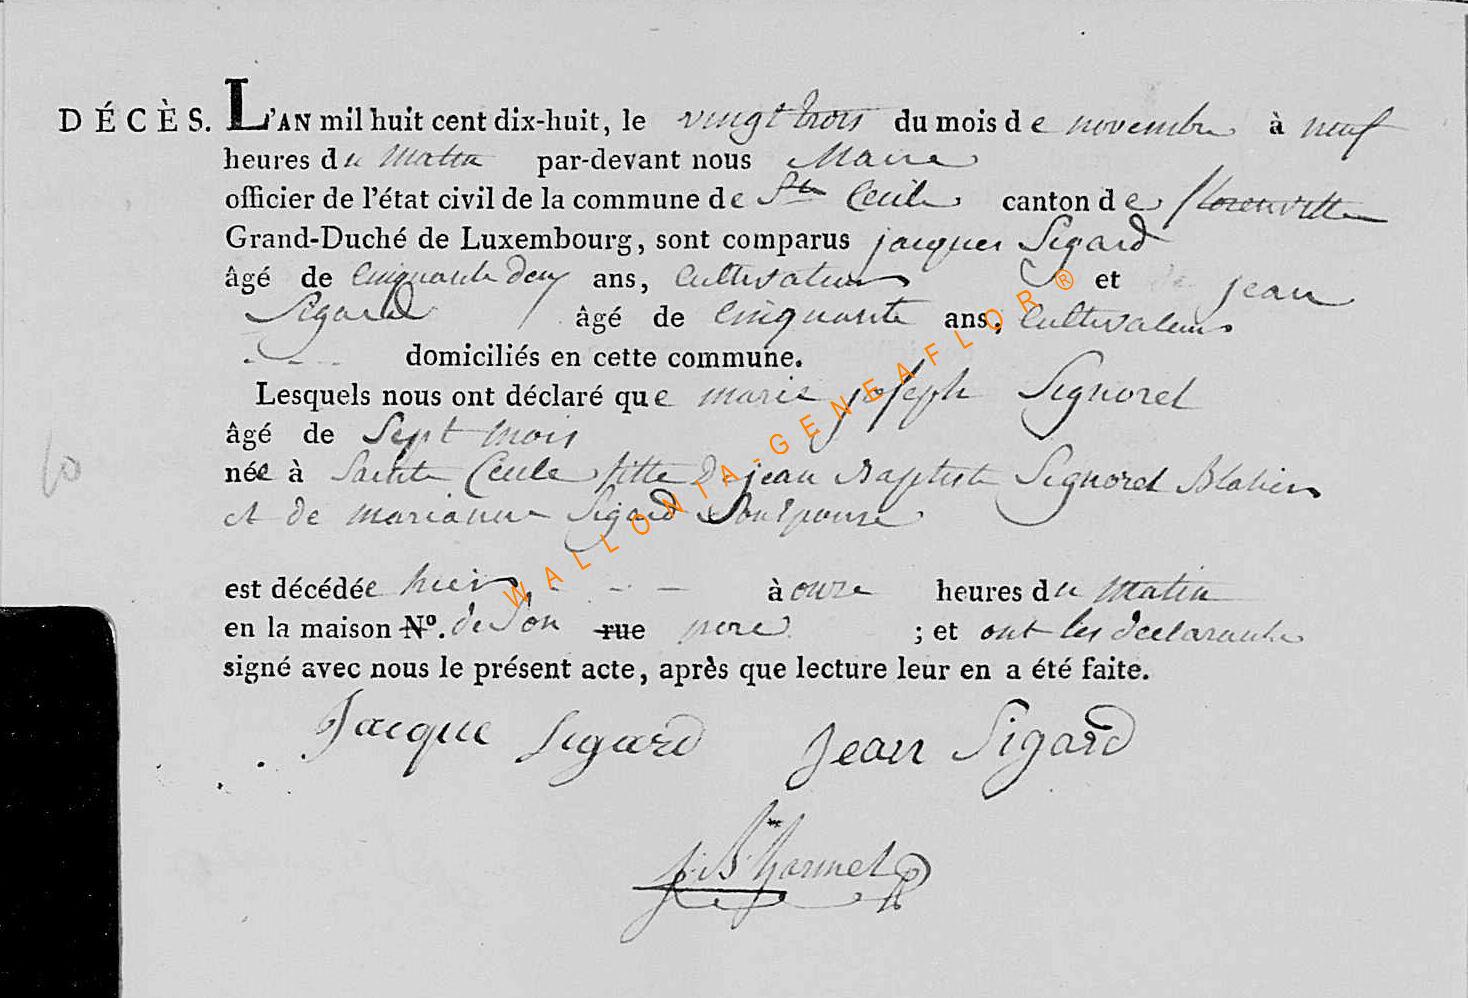 DÉCÈS. L'AN mil huit cent dix-huit, le vingt trois du mois de novembre à neuf
heures du Matin par-devant nous Maire
officier de l'état civil de la commune de Ste Cecile canton de florenville
Grand-Duché de Luxembourg, sont comparus jacques Sigard
âgé de Cinquante deux ans, Cultivateur et jean
Sigard âgé de Cinquante ans, Cultivateur
domiciliés en cette commune.
Lesquels nous ont déclaré que marie joseph Signorel
âgé de Sept mois
née à Sainte Cecile fille de jean Baptiste Signorel
et de marianne Sigard Son Epouse
est décédée hier, à onze heures du Matin
en la maison No. de Son rue pere ; et ont les declarants
signé avec nous le présent acte, après que lecture leur en a été faite.
Jacque Sigard Jean Sigard
j. B. harmel
WALLONIA-GENEAFLOR®